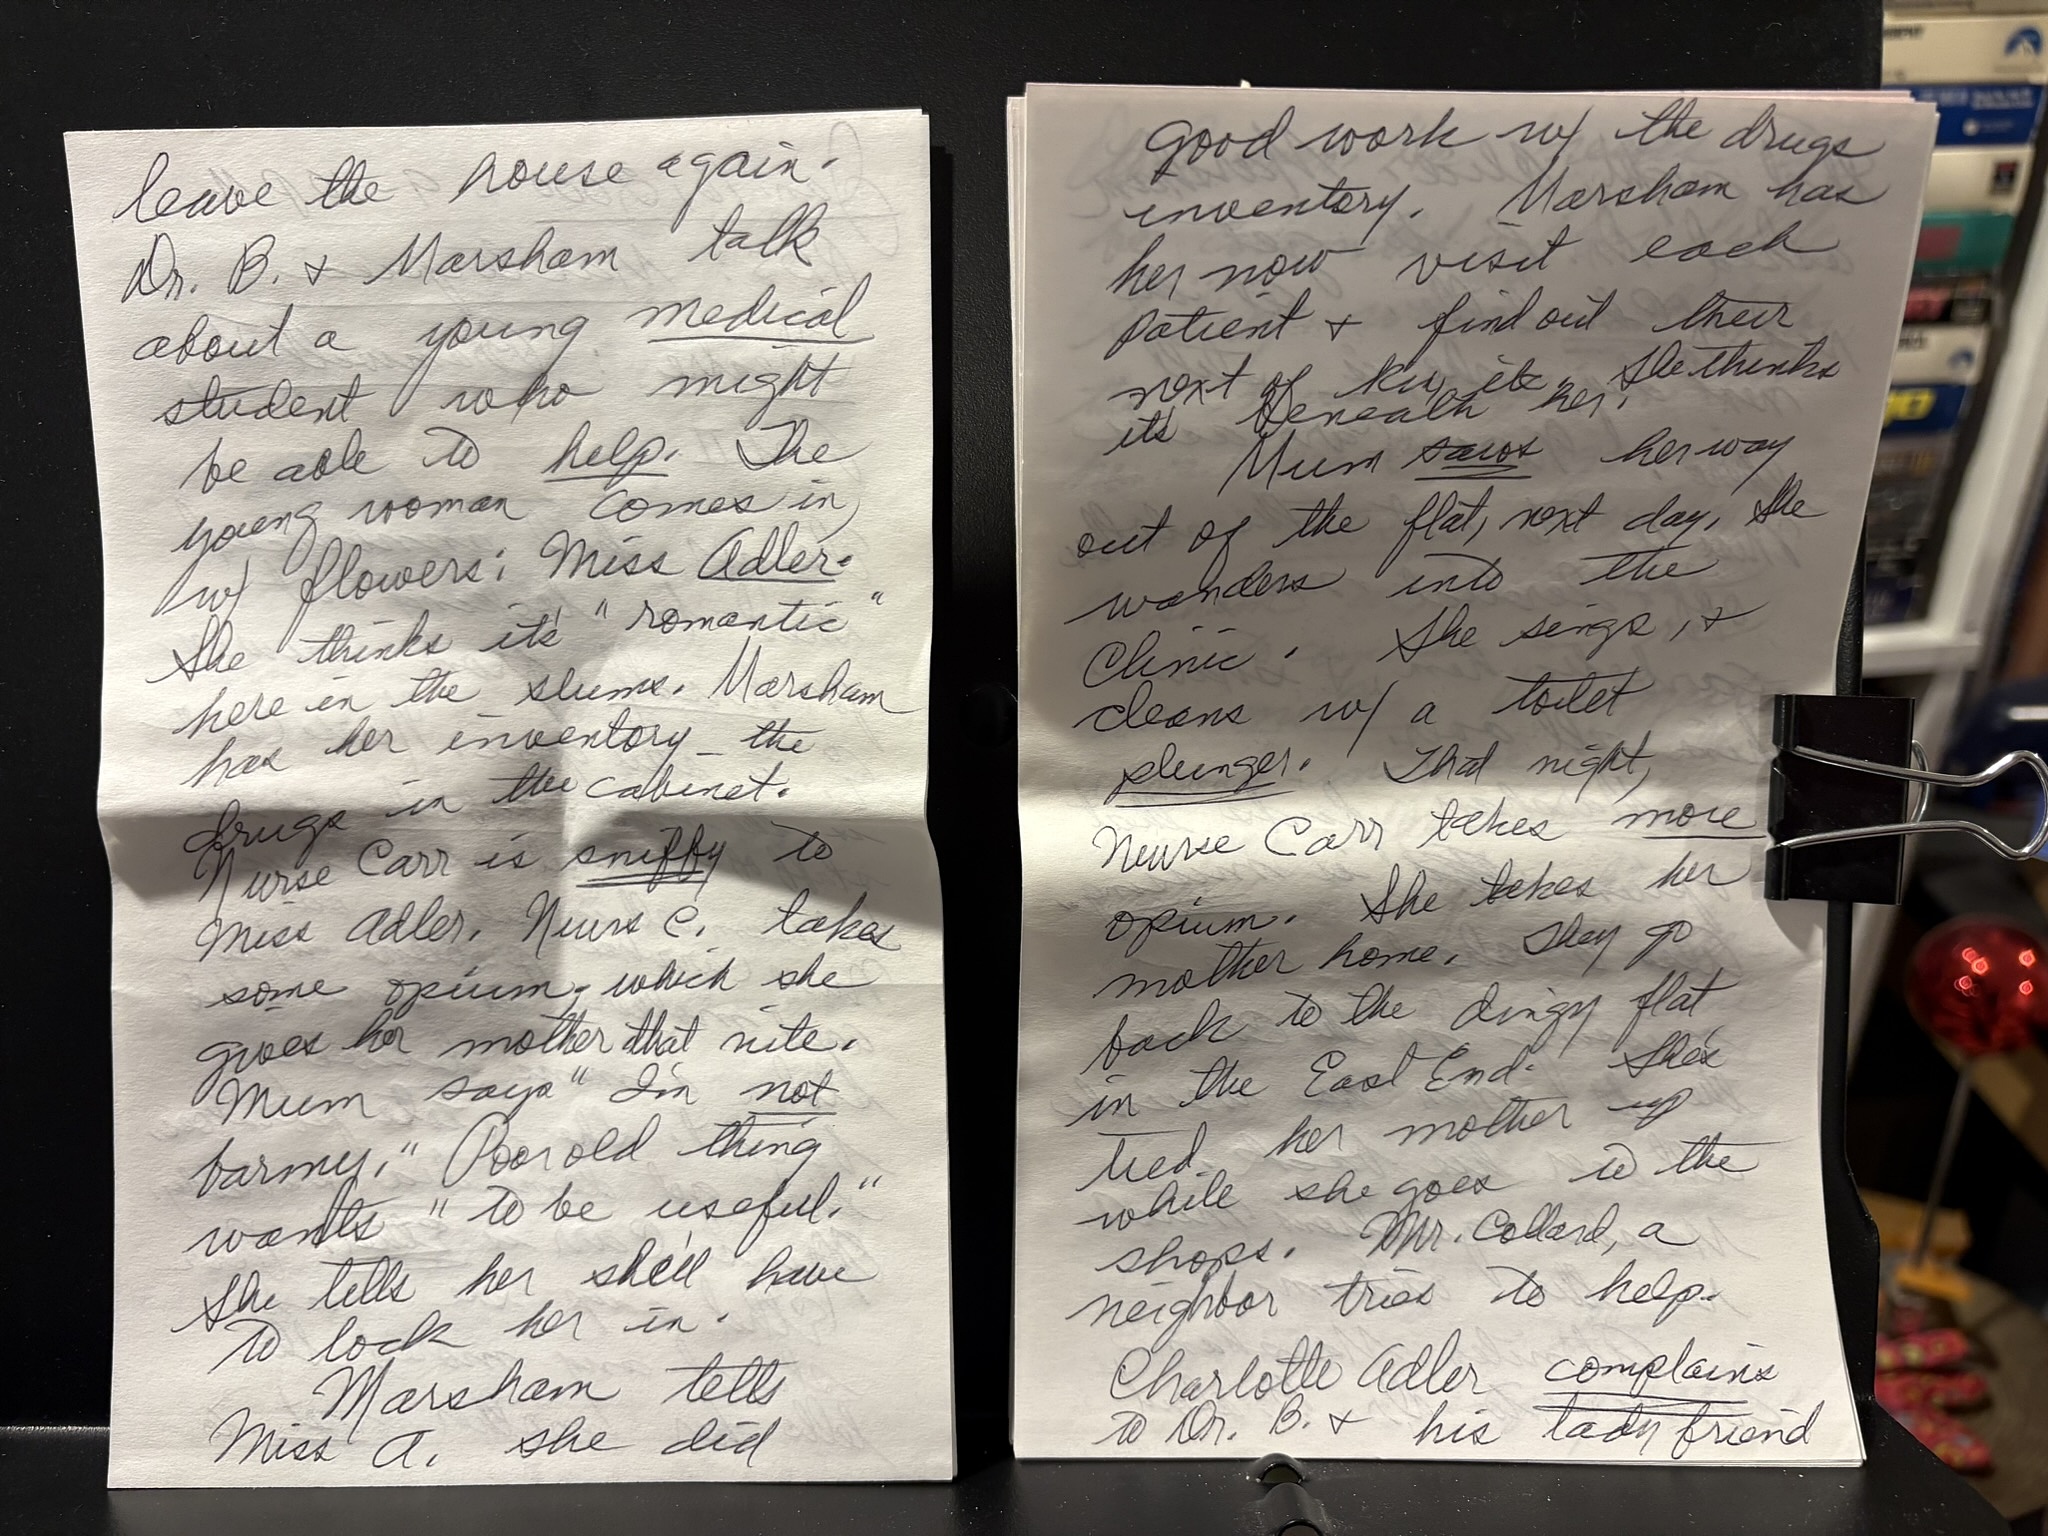 leave the house again.
Dr. B. & Marsham talk
about a young medical
student who might
be able to help. The
young woman comes in,
w/ flowers; Miss Adler.
She thinks it's "romantic"
here in the slums. Marsham
has her inventory the
drugs in the cabinet.
Nurse Carr is sniffy to
Miss Adler. Nurs C. takes
some opium, which she
gives her mother that nite.
Mum says "I'm not
barmy." Poor old thing
wants "to be useful."
She tells her she'll have
to lock her in.
Marsham tells
Miss A. she did
good work w/ the drugs
inventory. Marsham has
her now visit each
patient & find out their
next of kin, etc. She thinks
it's beneath her.
Mum saws her way
out of the flat, next day. She
wanders into the
Clinic. She sings, &
cleans w/ a toilet
plunger. That night,
Nurse Carr takes more
opium. She takes her
mother home. They go
back to the dingy flat
in the East End. She's
tied her mother up
while she goes to the
shops. Mr. Collard, a
neighbor tries to help.
Charlotte Adler complains
to Dr. B. & his lady friend